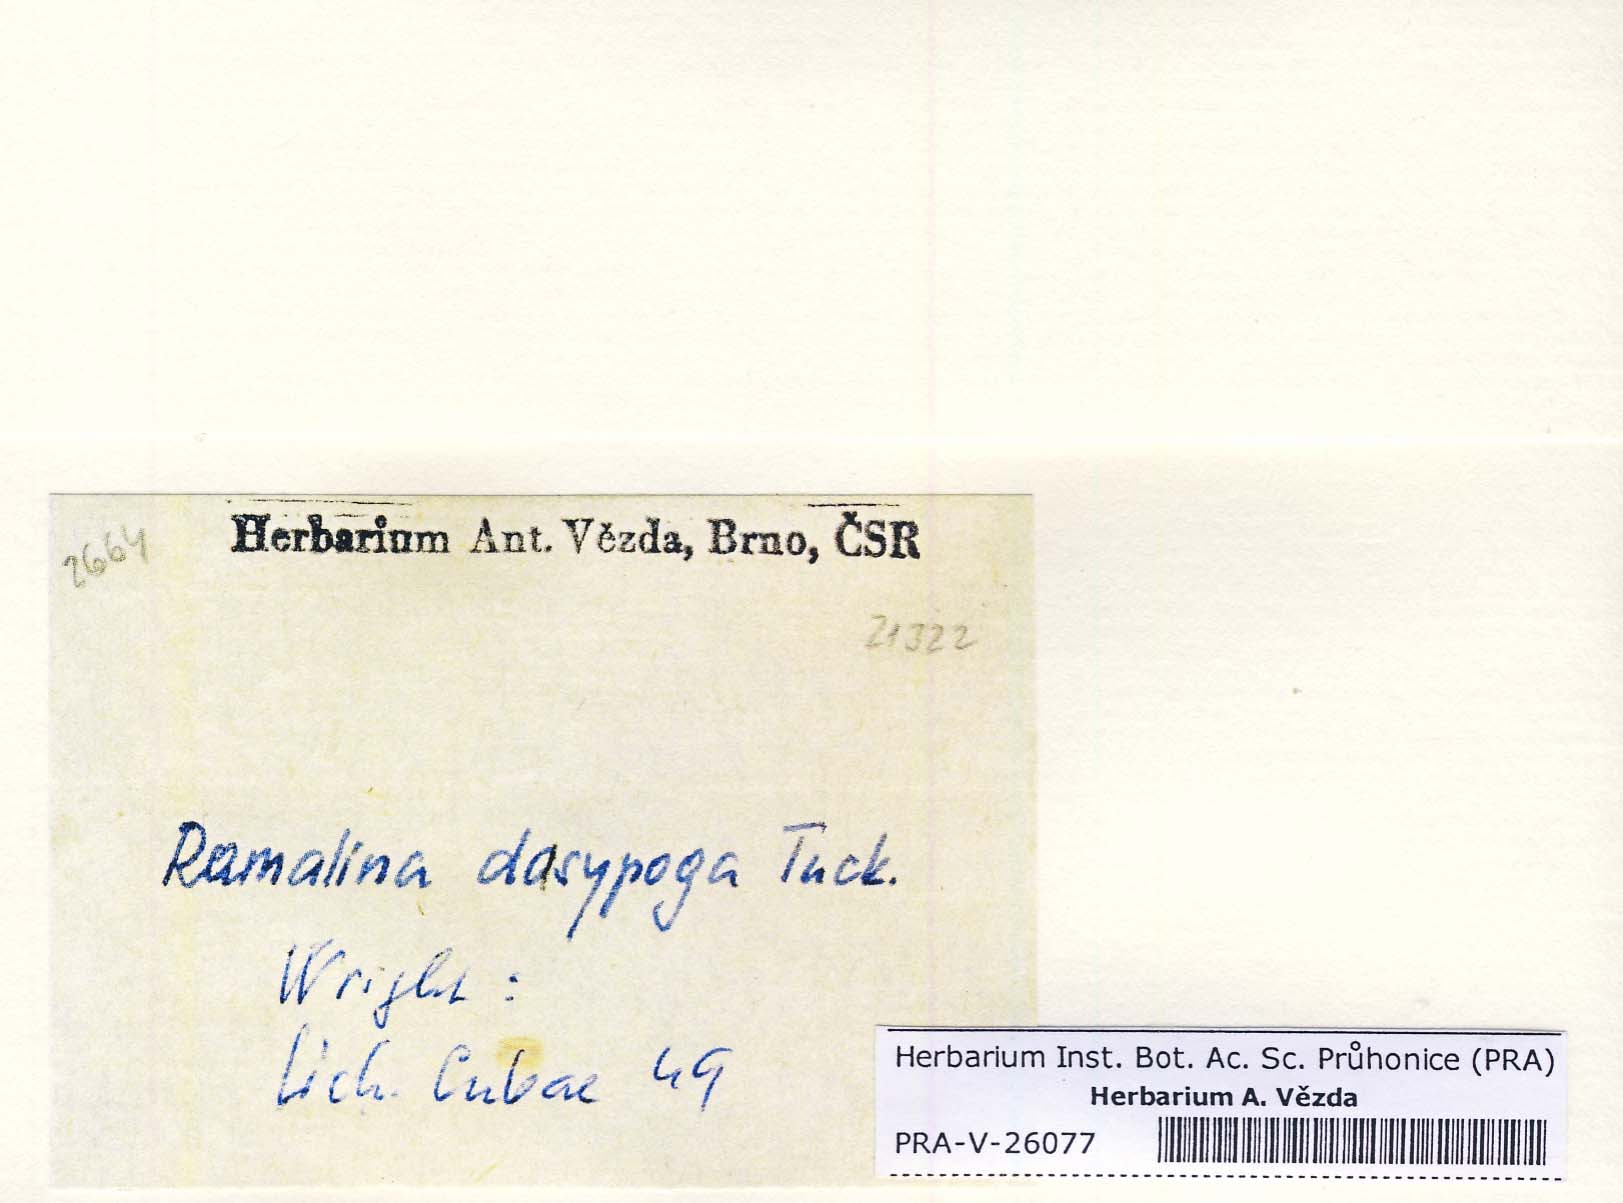 2664
Herbarium Ant. Vězda, Brno, ČSR
21322
Ramalina dasypoga Tuck.
Wright :
Lich. Cubae 49
Herbarium Inst. Bot. Ac. Sc. Průhonice (PRA)
Herbarium A. Vězda
PRA-V-26077